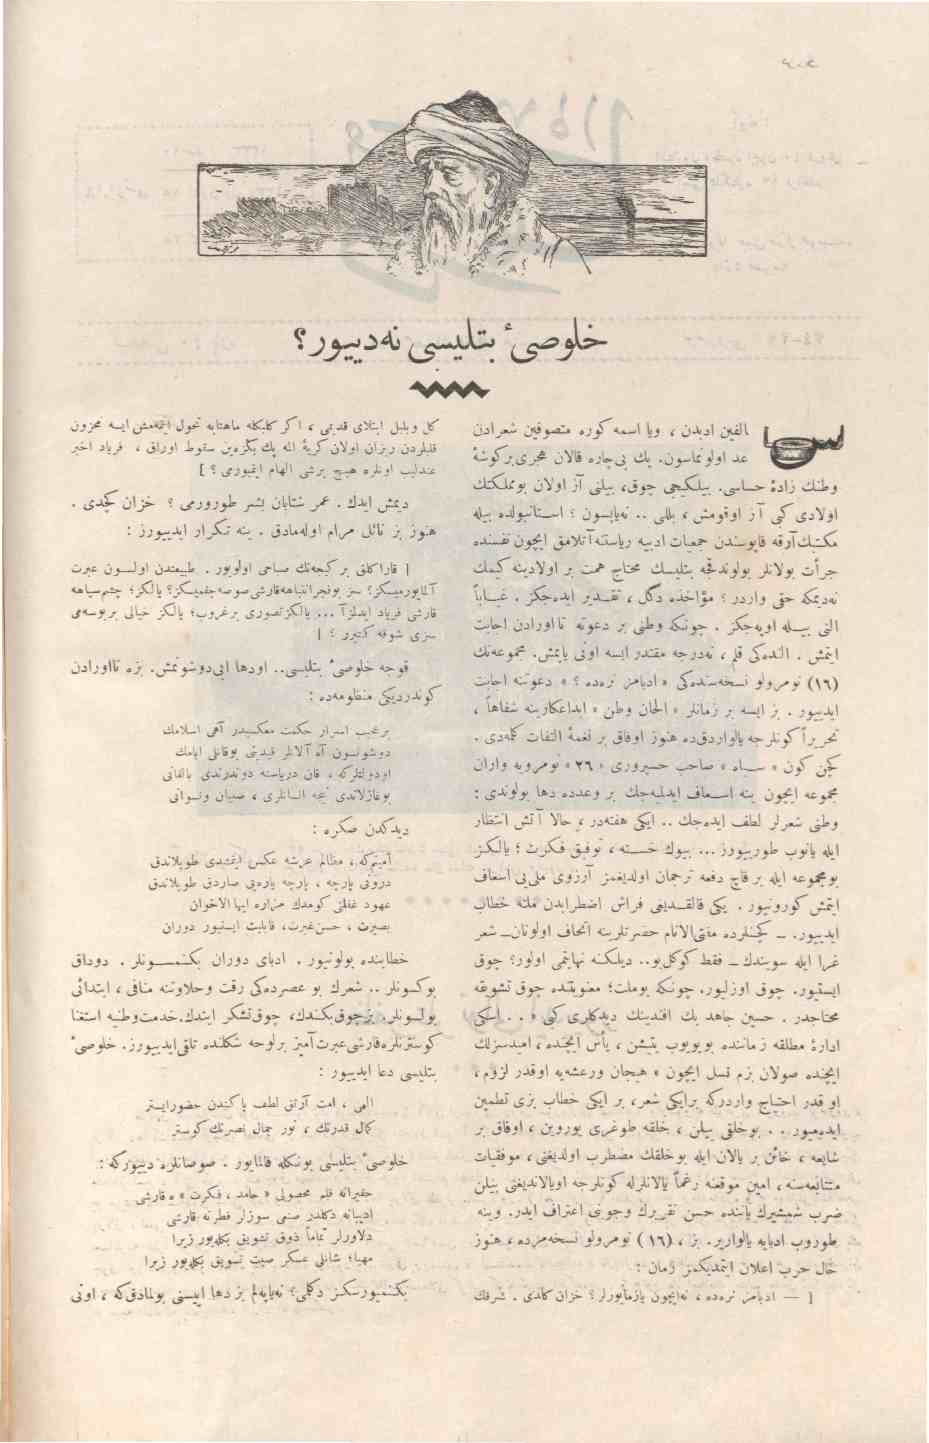 ٥٠٦
خلوصیٔ بتلیسی نه‌دییور؟
مؤلفین ادبدن ، ویا اسمه كوره متصوفین شعردن
عد اولونماسون. پك بی‌چاره قالان هجری برگوشهٔ
وطنك زادهٔ حساسی. بیلكیجی چوق، بیلنی آز اولان بومملكتك
اولادی كبی آز اوقومش ، بللی .. نه‌یاپسون ؟ استانبولده بیله
مكتبك آرقه قاپوسندن جمعیات ادبیه ریاستنه آتلامق ایچون نفسنده
جرأت بولانلر بولوندقجه بتلیسك محتاج همت بر اولادینه كیمك
نه‌دیمكه حقی واردر ؟ مؤاخذه دگل ، تقدیر ایده‌جكز . غیاباً
الی بیله اوپه‌جكز . چونكه وطنی بر دعوته تا اورادن اجابت
ایتمش . النده‌كی قلم ، نه‌درجه مقتدر ایسه اونی یاپمش. مجموعه‌نك
(١٦) نومرولو نسخه‌سنده‌كی « ادبامز نره‌ده ؟ » دعوتنه اجابت
ایدییور . بز ایسه بر زمانلر « الحان وطن » ابداعكارینه شفاهاً ،
تحریراً كونلرجه یالواردق‌ده هنوز اوفاق بر نغمهٔ التفات كلمه‌دی .
كچن كون « ســاه » صاحب حسپروری « ٢٦ » نومرویه واران
مجموعه ایچون ینه اسعاف ایدلمیه‌جك بر وعدده دها بولوندی :
وطنی شعرلر لطف ایده‌جك .. ایكی هفته‌در ، حالا آتش انتظار
ایله یانوب طورییورز ... بیوك خسته ، توفیق فكرت ؛ یالكز
بومجموعه ایله بر قاچ دفعه ترجمان اولدیغمز آرزوی ملی‌یی اسعاف
ایتمش كورونیور . یكی قالقدیغی فراش اضطرابدن ملته خطاب
ایدییور. ــ كچنلرده مفتی‌الانام حضرتلرینه اتحاف اولونان ــ شعر
غرا ایله سویندك ــ فقط كوكل بو.. دیلكنه نهایتمی اولور؟ چوق
ایستیور. چوق اوزلیور. چونكه بوملت؛ معنویتده چوق تشویقه
محتاجدر . حسین جاهد بك افندینك دیدكلری كبی « . . اسكی
ادارهٔ مطلقه زماننده بویویوب یتیشن ، یأس ایچنده ، امیدسزلك
ایچنده صولان بزم نسل ایچون » هیجان ورعشه‌یه اوقدر لزوم ،
او قدر احتیاج واردركه برایكی شعر، بر ایكی خطاب بزی تطمین
ایده‌میور . . بوخلقی بیلن ، خلقه طوغری یوروین ، اوفاق بر
شایعه ، خائن بر یالان ایله بوخلقك مضطرب اولدیغنی ، موفقیات
متتابعه‌سنه ، امین موقعنه رغماً یالانلرله كونلرجه اویالاندیغنی بیلن
ضرب شمشیرك یاننده حسن تقریرك وجوبنی اعتراف ایدر. وینه
طوروب ادبایه یالواریر. بز ، (١٦) نومرولو نسخه‌مزده ، هنوز
حال حرب اعلان ایتمدیكمز زمان :
[ — ادبامز نره‌ده ، نه‌ایچون یازمایورلر ؟ خزان كلدی . شرفك
كل وبلبل ابتلای قدرتی ، اكر كاملكله ماهتابه تحول ایتمه‌مش ایسه محزون
قلبلردن ریزان اولان كریهٔ الله پك بكزه‌ین سقوط اوراق ، فریاد اخیر
عندلیب اونلره هیچ برشی الهام ایتمیورمی ؟ ]
دیمش ایدك . عمر شتابان بشر طورورمی ؟ خزان كچدی .
هنوز بز نائل مرام اوله‌مادق . ینه تكرار ایدییورز :
[ قارا كلق بر كیجه‌نك صباحی اولویور . طبیعتدن اولسون عبرت
آلمایورمیسكز؟ سز بوفجر انتباهه قارشی صوصه‌جقمیسكز؟ یالكز؛ چشم سیاهه
قارشی فریاد ایدلمز آ ... یالكز تصوری برغروب؛ یالكز خیالی بر بوسه‌می
سزی شوقه كتیرر ؟ ]
قوجه خلوصیٔ بتلیسی.. اودها ایی دوشونمش. بزه تا اورادن
كوندردیكی منظومه‌ده :
برعجیب اسرار حكمت معكسیدر آهی اسلامك
دوشونسون آه آلانلر قیدینی بوقانلی ایامك
اودولتلركه ، قان دریاسنه دوندردی بالقانی
بوغازلاندی نیجه انسانلری ، صبیان ونسوانی
دیدكدن صكره :
امینم‌كه ، مظالم عرشه عكس ایتمشدی طوپلاندق
درونی پارچه ، پارچه یاره‌یی صاردق طوپلاندق
عهود غفلتی كومدك مزاره ایها الاخوان
بصیرت ، حسن غیرت، قابلیت ایستیور دوران
خطابنده بولونیور . ادبای دوران بكنمــسونلر . دوداق
بوكسونلر .. شعرك بو عصرده‌كی رقت وحلاوتنه منافی ، ابتدائی
بولسونلر. بزچوق بكندك، چوق تشكر ایتدك.خدمت وطنیه استغنا
كوسترنلره قارشی عبرت آمیز برلوحه شكلنده تلقی ایدییورز. خلوصیٔ
بتلیسی دعا ایدییور :
الهی ، امت آرتق لطف پاكندن حضور ایستر
كمال قدرتك ، نور جمال نصرتك كوستر
خلوصیٔ بتلیسی بونكله قالمایور . صوصانلره دییوركه :
حقیرانه قلم محصولی « حامد ، فكرت » ه قارشی
ادیبانه دكلدر صنعی سوزلر فطرته قارشی
دلاورلر تماماً ذوق تشویق بكله‌یور زیرا
مهیا؛ شانلی عسكر صیت تسویق بكله‌یور زیرا
بكنمیورسكز دكلمی؟ نه‌یاپه‌لم بز دها اییسنی بولمادق‌كه ، اونی